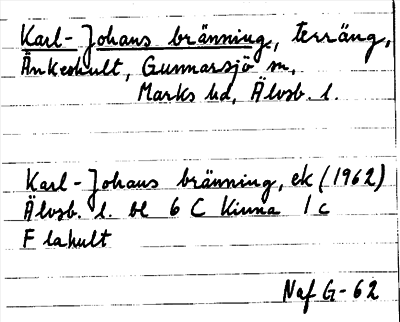 Karl-Johans bränning, terräng,
Änkeshult, Gunnarsjö sn,
Marks hd, Älvsb. l.
Karl-Johans bränning, ek (1962)
Älvsb. l. bl 6 C Kinna 1 c
F lahult
Naf G-62